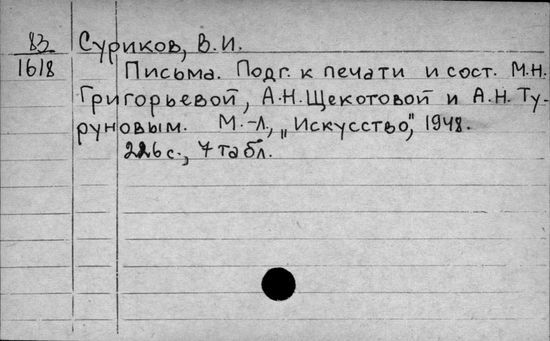 83
1618
Суриков, В.И.
Письма. Подг. к печати и сост. М.Н.
Григорьевой, А.Н.Щекотовой и А.Н. Ту-
руновым. М.-Л., „Искусство", 1948.
226 с., 7 табл.